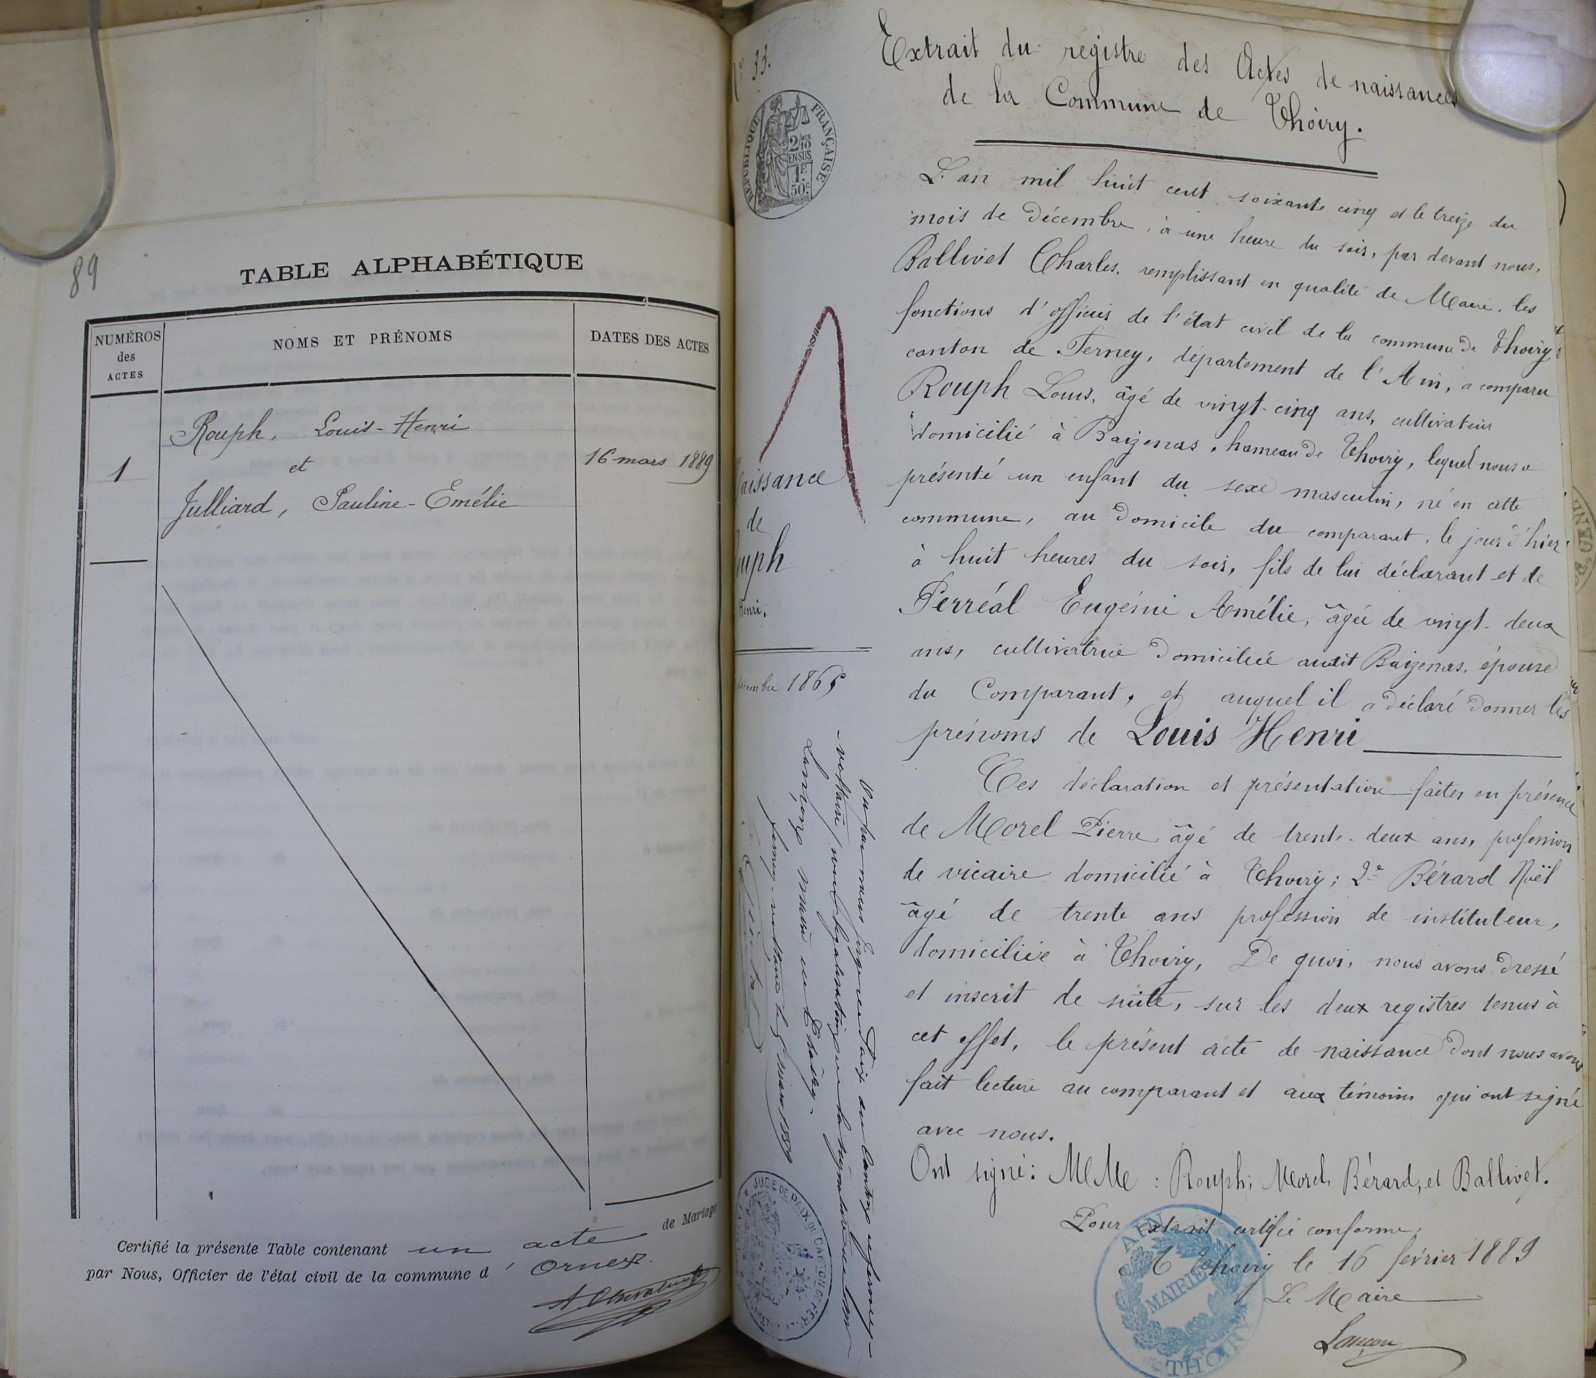 89
TABLE ALPHABÉTIQUE
NUMÉROS des ACTES
NOMS ET PRÉNOMS
DATES DES ACTES
1
Rouph, Louis-Henri
et
Julliard, Pauline-Emélie
16 mars 1889
de Mariage
Certifié la présente Table contenant un acte
par Nous, Officier de l'état civil de la commune d' Ornex.
N° 33.
RÉPUBLIQUE FRANÇAISE
Extrait du registre des Actes de naissances
de la Commune de Thoiry.
L'an mil huit cent soixante cinq et le treize du
mois de décembre, à une heure du soir, par devant nous,
Ballivet Charles, remplissant en qualité de Maire, les
fonctions d'officier de l'état civil de la commune de Thoiry,
canton de Ferney, département de l'Ain, a comparu
Rouph Louis, âgé de vingt-cinq ans, cultivateur
domicilié à Baijenas, hameau de Thoiry, lequel nous a
présenté un enfant du sexe masculin, né en cette
commune, au domicile du comparant, le jour d'hier
à huit heures du soir, fils de lui déclarant et de
Perréal Eugénie Amélie, âgée de vingt-deux
ans, cultivatrice domiciliée audit Baijenas, épouse
du Comparant, et auquel il a déclaré donner les
prénoms de Louis Henri
Ces déclaration et présentation faites en présence
de Morel Pierre âgé de trente-deux ans, profession
de vicaire domicilié à Thoiry; 2° Bérard Noël
âgé de trente ans profession de instituteur,
domiciliée à Thoiry, De quoi, nous avons dressé
et inscrit de suite, sur les deux registres tenus à
cet effet, le présent acte de naissance dont nous avons
fait lecture au comparant et aux témoins qui ont signé
avec nous.
Ont signé: MMe: Rouph, Morel, Bérard, et Ballivet.
Pour extrait certifié conforme,
A Thoiry le 16 février 1889
Le Maire
Lançon
MAIRIE
AIN
THOIRY
Naissance
de
Rouph
Henri.
décembre 1865
Vu par nous Juge de Paix du canton de Ferney-
-Voltaire, pour légalisation de la signature de M.
Lançon maire de Thoiry.
Ferney-Voltaire le mars 1889
JUGE DE PAIX DU CANTON